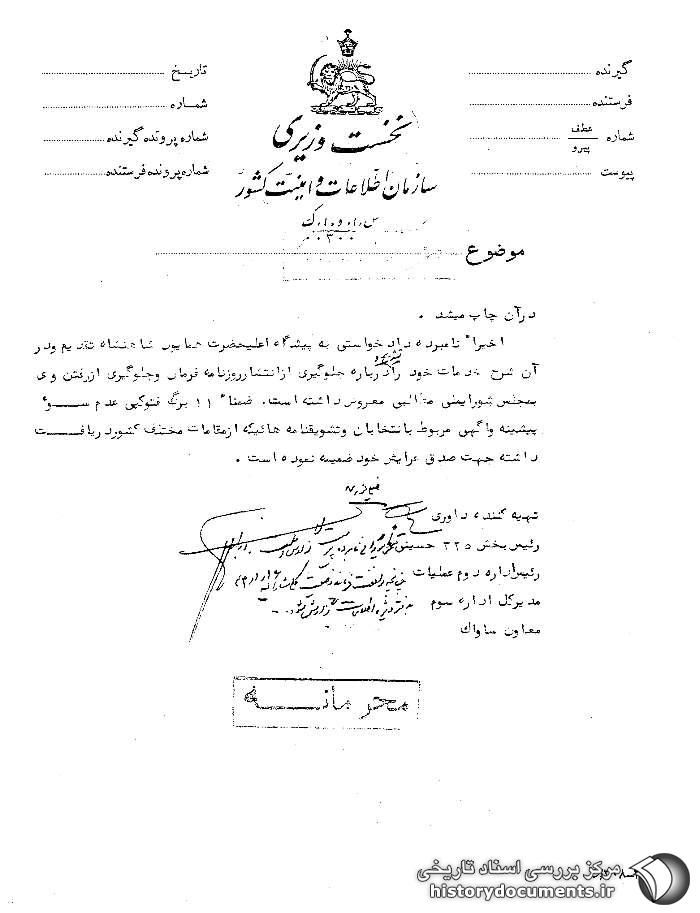 گیرنده
فرستنده
شماره عطف
پیرو
پیوست
تاریخ
شماره
شماره پرونده گیرنده
شماره پرونده فرستنده
نخست وزیری
سازمان اطلاعات و امنیت کشور
موضوع
درآن چاپ میشد .
اخیرا" نامبرده داد خواستی به پیشگاه اعلیحضرت همایون شاهنشاه تقدیم ودر
آن شرح خدمات خود را درباره جلوگیری از انتشار روزنامه فرمان وجلوگیری ازرفتن وی
بمجلس شورایملی مطالبی معروض داشته است. ضمنا" ۱۱ برگ فتوکپی عدم سوء
پیشینه واگهی مربوط بانتخابات وتشویقنامه هائیکه ازمقامات مختلف کشور دریافت
داشته جهت صدق عرایض خود ضمیمه نموده است .
تهیه کننده داوری
رئیس بخش ۳۲۵ حسینی
رئیس اداره دوم عملیات
مدیرکل اداره سوم
معاون ساواک
محرمانه
مرکز بررسی اسناد تاریخی
historydocuments.ir